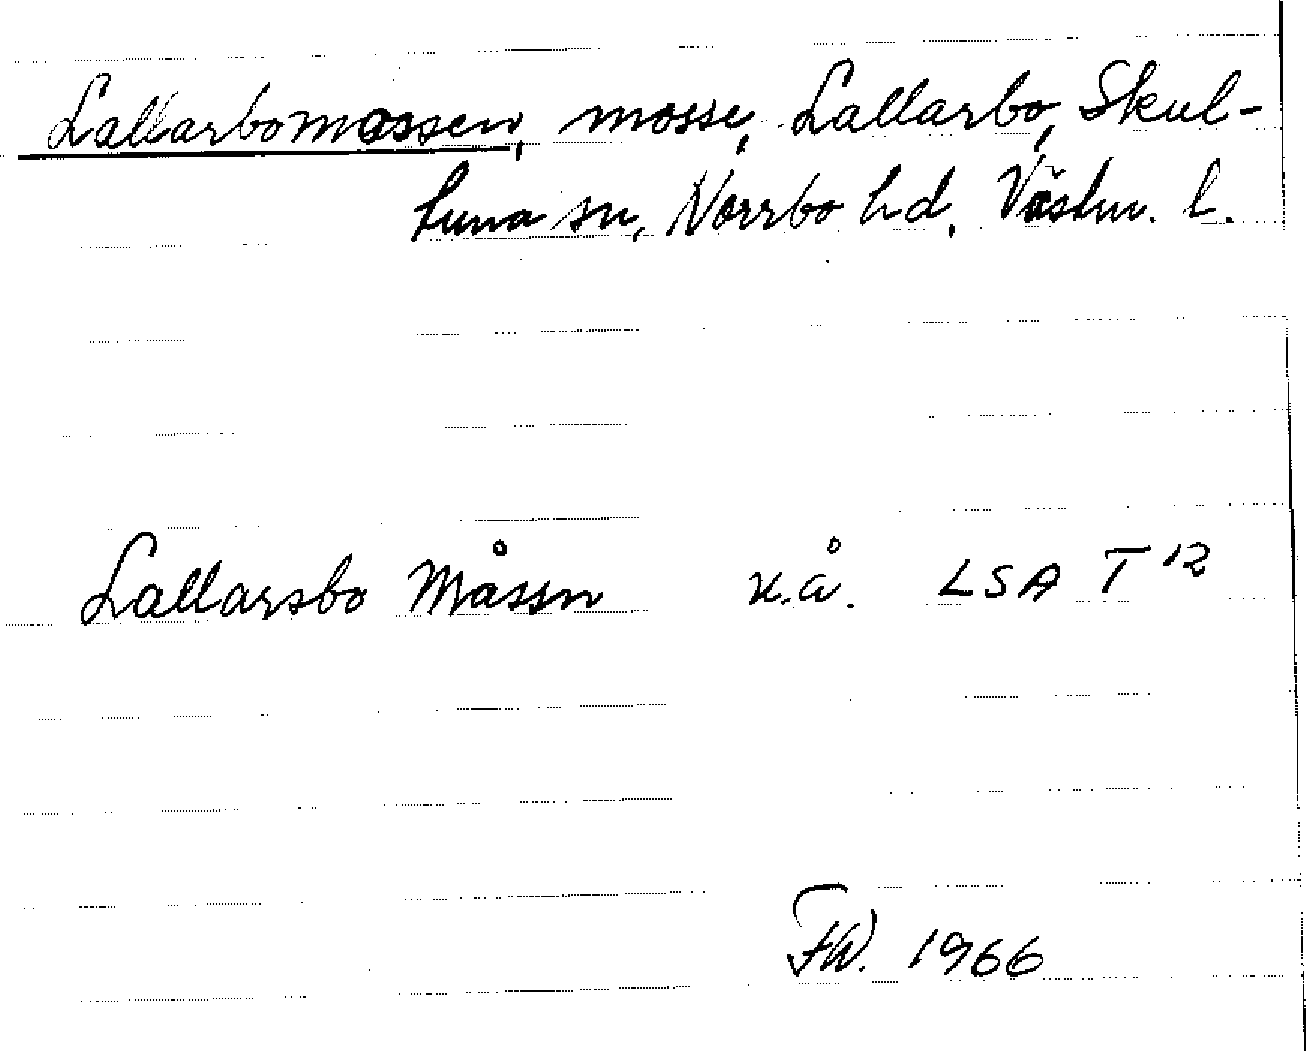 Lallarbomossen, mosse, Lallarbo, Skul-
tuna sn, Norrbo hd, Västm. l.
Lallarsbo Måssn u.å. LSA T 12
FW. 1966